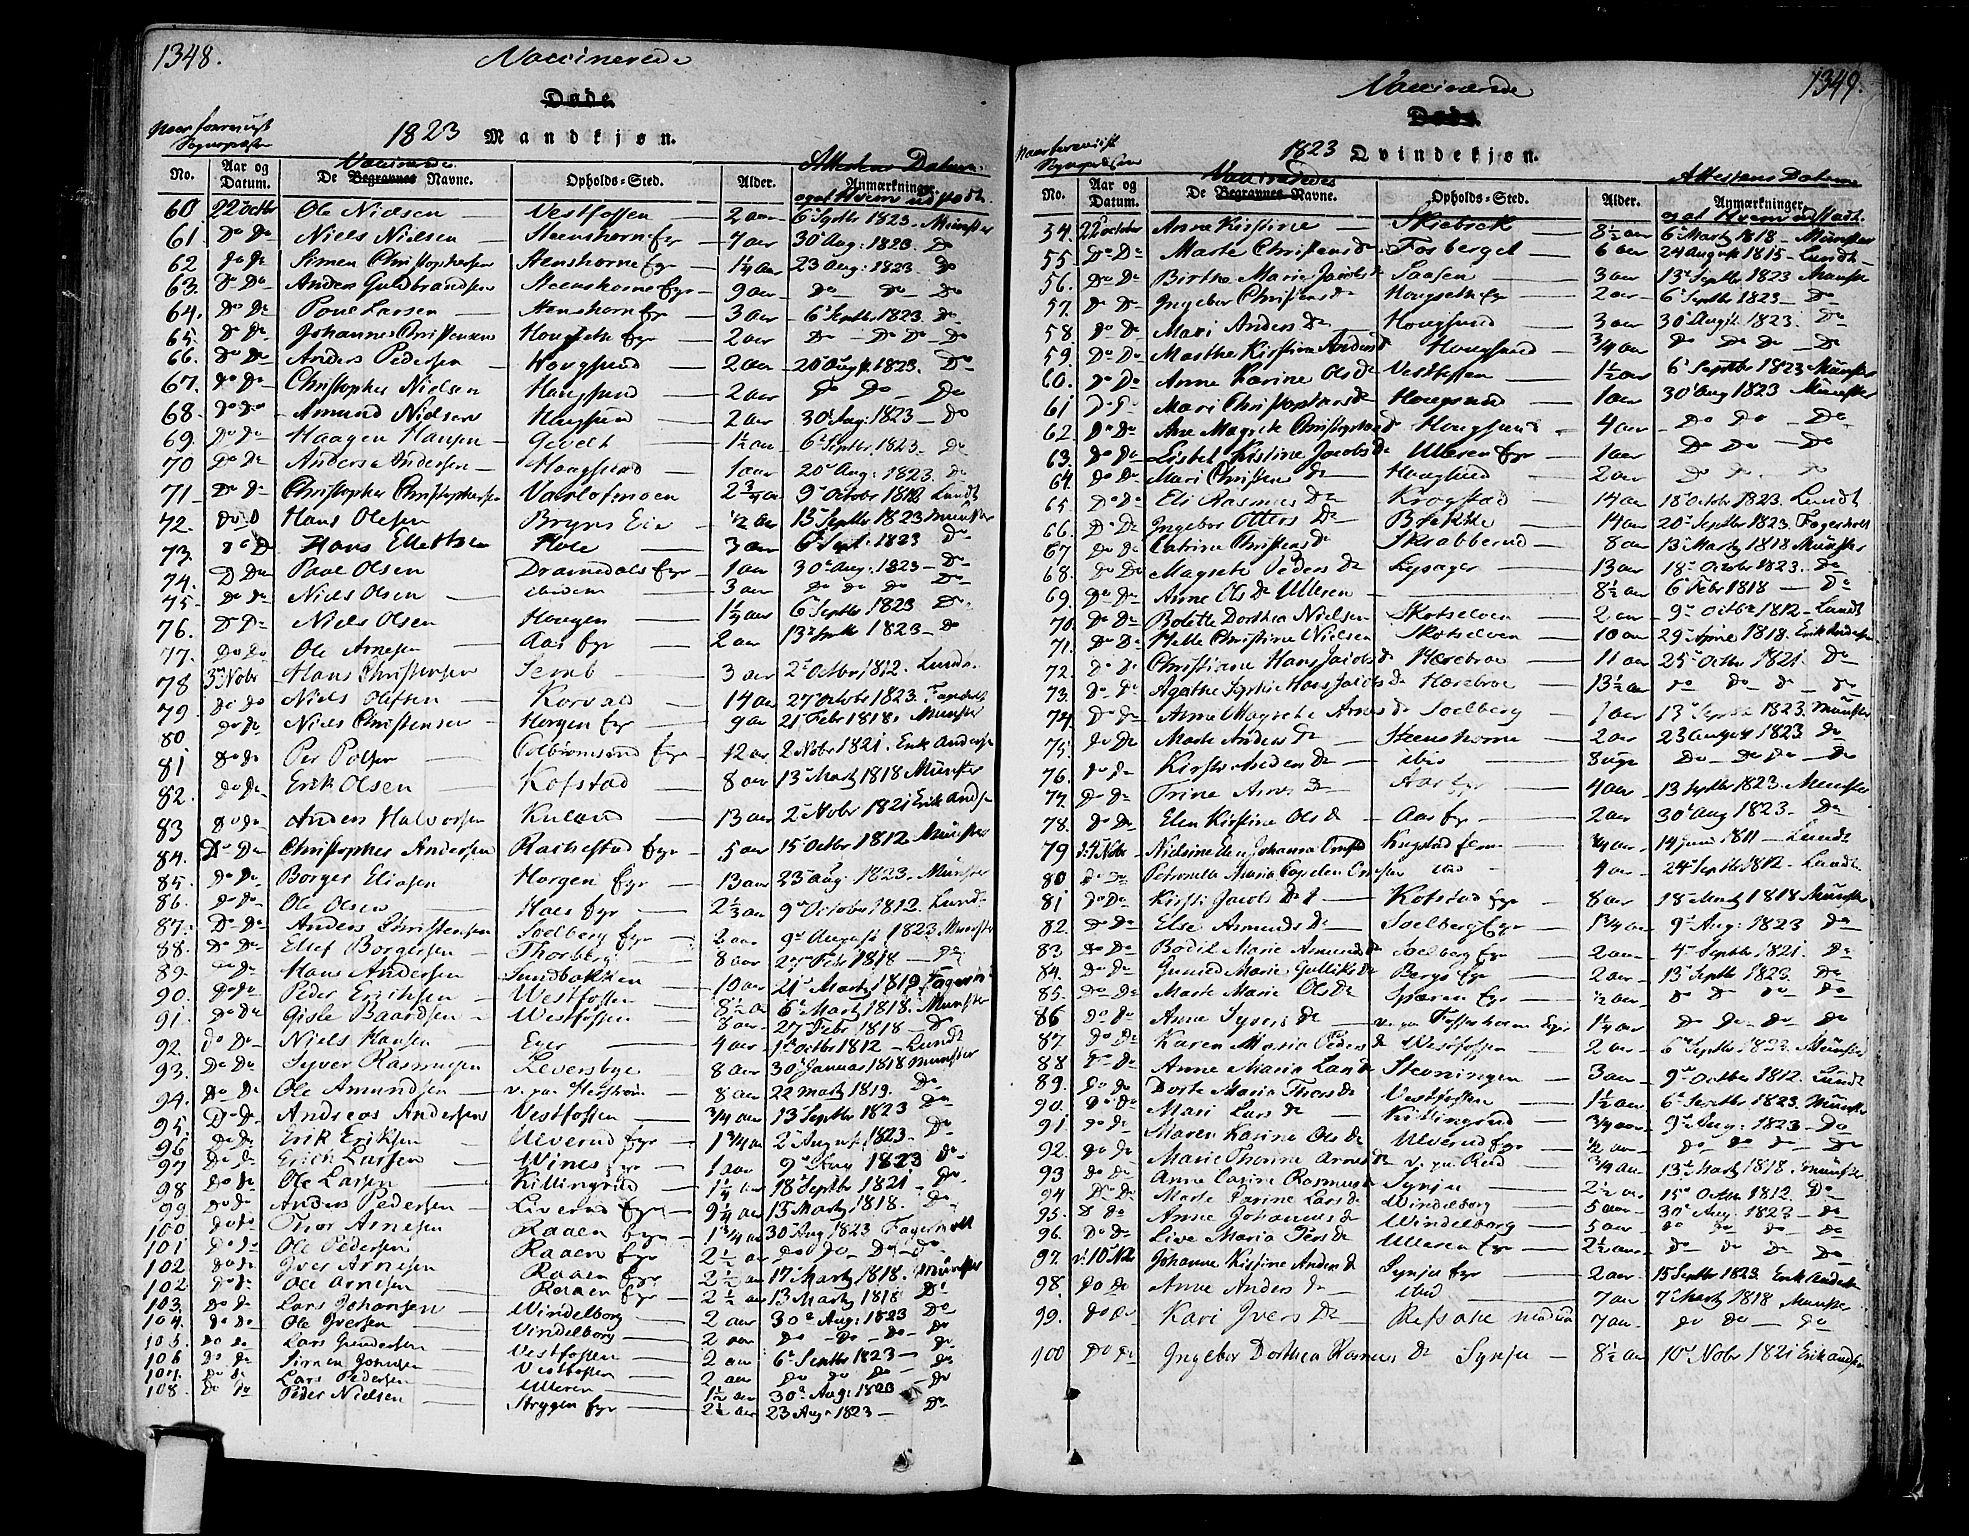 1348.
Vaccinerede
Døde.
1823 Mandkjøn.
No. Aar og Datum. De Vaccinerede Begravnes Navne. Opholds-Sted. Alder. Attestens Datum Anmærkninger og af Hvem udstædt
60 22 octbr Ole Nielsen Vestfossen 2 aar 6 Septbr 1823 Münster
61 Do Do Niels Nielsen Steenshorne Eyr 4 aar 30 Aug: 1823 Do
62 Do Do Simen Christophersen Stenshorne Eyr 1¼ aar 23 Aug: 1823 Do
63. Do Do Anders Guldbrandsen Steenshorne Eyr 9 aar Do Do Do
64. Do Do Poul Larsen Stenshorn Eyr 3 aar 6 Septbr 1823 Do
65. Do Do Johannes Christensen Hougseth Eyr 2 aar Do Do Do Do
66. Do Do Anders Pedersen Hougsund 2 aar 20 Augst 1823 Do
67. Do Do Christopher Nielsen Hougsund 2 aar Do Do Do
68. Do Do Amund Nielsen Hougsund 2 aar 30 Aug: 1823 Do
69. Do Do Haagen Hansen 1½ aar 6 Septbr 1823 Do
70 Do Do Anders Andersen Hougsund 1 aar 20 Aug: 1823. Do
71 Do Do Christopher Christophersen 9 October 1812 Lundt
72. Do Do Hans Olesen Bryns Eie ½ aar 13 Septbr 1823 Münster
73. Do Do Hans Ellefsen Hole 3 aar 6 Sept: 1823 Do
74. Do Do Poul Olsen Dramdals Eyr 1 aar 30 Aug: 1823 Do
75. Do Do Niels Olsen ibidem 3 aar Do Do Do Do
76. Do Do Niels Olsen Hougen 1¼ aar 6 Septbr 1823 Do
77. Do Do Ole Arnesen Aas Eyr 2 aar 13 Septbr 1823 Do
78 3 Nobr Hans Christensen Semb 3 aar 2 Octobr 1812. Lundt
79. Do Do Niels Olsen Korvald 14 aar 27 Octobr 1823.
80 Do Do Niels Christensen Horgen Eyr 9 aar 21 Febr 1818 Münster
81 Do Do Per Polsen Eyr 12 aar 2 Nobr 1821. Erik Andersen
82. Do Do Erik Olsen Kofstad 8 aar 13 Martz 1818 Münster
83 Do Do Anders Halvorsen 13 aar 2 Nobr 1821 Erik Andsn
84. Do Do Christopher Andersen Eyr 5 aar 15 Octbr 1812. Münster
85. Do Do Borger Eliasen Horgen Eyr 13 aar 23 Aug: 1823. Münster
86. Do Do Ole Olsen Hals Eyr 2⅓ aar 9 October 1812. Lundt
87. Do Do Anders Christensen Soelberg Eyr ½ aar 9 August 1823. Münster
88. Do Do Ellef Borgersen Thorberg 8 aar 27 Febr 1818 Do
89. Do Do Hans Andersen Sundbakken 10 aar 21 Martz 1819
90. Do Do Peder Eriksen Westfossen 8½ aar 6 Martz 1818. Münster
91. Do Do Gisle Baardsen Westfossen 8 aar 27 Febr 1818 Do
92. Do Do Niels Hansen Eger 4 aar 1 Octbr 1812 Lundt
93. Do Do Syver Rasmusen Leversbye 8 aar 30 Januar 1818 Münster
94. Do Do Ole Amundsen 8 aar 22 Martz 1819. Do
95. Do Do Andreas Andersen Vestfossen ¾ aar 13 Septbr 1823 Do
96 Do Do Erik Eriksen Ulverud Eyr 1¾ aar 2 August 1823 Do
97 Do Do Erich Larsen Wines Eyr 1 aar 9 Aug 1823 Do
98 Do Do Ole Larsen Killingrud 1¼ aar 18 Septbr 1821 Do
99 Do Do Anders Pedersen Liverud Eyr 9¼ aar 13 Martz 1818. Do
100 Do Do Thor Arnesen Raaen Eyr 1¾ aar 30 Aug 1823 Fagerholt
101 Do Do Ole Pedersen Raaen Eyr 2½ aar Do Do Do Do
102 Do Do Iver Arnesen Raaen Eyr 2½ aar 17 Martz 1818. Münster
102 Do Do Ole Arnesen Raaen Eyr 2½ aar 13 Martz 1818 Do
103. Do Do Lars Johansen Windelborg 2 aar 30 Aug: 1823 Do
104. Do Do Ole Iversen Vindelborg 2 aar Do Do Do Do
105. Do Do Lars Gundersen Vestfossen 2 aar 6 Septbr 1823 Do
106 Do Do Simen Johnsen Vestfossen 2 aar Do Do Do Do
107. Do Do Lars Pedersen Ulleren 1½ aar 30 Aug: 1823 Do
108. Do Do Peder Nielsen Strygen Eyr 2½ aar 23 Aug 1823 Do
1349.
Vaccinerede
Døde.
1823 Qvindekjøn.
No. Aar og Datum. De Vaccineredes Begravnes Navne. Opholds-Sted. Alder. Attestens Datum Anmærkninger og af Hvem udstædt.
54. 22 october Anne Kirstine Skiebrek 8½ aar 6 Martz 1818 Münster
55 Do Do Marte Christensd Forberget 6 aar 24 august 1815 Lundt
56. Do Do Birthe Marie Jacobsd Saasen 3 aar 13 Septbr 1823 Münster
57. Do Do Ingebor Christensd Hougseth Eyr 2 aar 6 Septbr 1823 Do
58 Do Do Mari Andersd Hougsund 3 aar 30 Augst 1823. Do
59. Do Do Marthe Kirstine Andersd Hougsund ¾ aar Do Do Do Do
60. Do Do Anne Karine Olsd Vestfossen 1½ aar 6 Septbr 1823 Münster
61 Do Do Mari Christophersd Hougsund 1 aar 30 Aug 1823 Münster
62. Do Do Ane Magrete Christophersd Hougsund 4 aar Do Do Do
63. Do Do Lisbet Kirstine Jacobsd Ulleren Eyr 1 aar Do Do Do
64. Do Do Mari Christensd Hougsund 2 aar Do Do Do
65 Do Do Eli Rasmusd Krogstad 14 aar 18 Octobr 1823. Lundt
66. Do Do Ingebor Ottersd 14 aar 20 Septbr 1823. Fagerholt
67 Do Do Catrine Christensd Skrabberud 8 aar 13 Martz 1818 Münster
68. Do Do Magrete Pedersd 13 aar 18 Octobr 1823. Do
69 Do Do Anne Olsd Ulleren 8½ aar 6 Febr 1818 Do
70. Do Do Bolette Dorthea Nielsen Skotselven 2 aar 9 Octbr 1812 Lundt
71. Do Do Helle Christine Nielsen Skotselven 10 aar 29 April 1818. Erik Andersen
72. Do Do Christiane Hans Jacobsd Horebroe 11 aar 25 Octbr 1821. Do
73 Do Do Agathe Sophie Hans Jacobsd Horebroe 13½ aar Do Do Do Do
74 Do Do Anne Magrete Arnesd Soelberg 1 aar 13 Septbr 1823. Münster
75. Do Do Marte Andersd Steenshorne 2 aar 23 August 1823 Do
76. Do Do Kirsti Andersd ibid 8 uge Do Do Do Do
77. Do Do Trine Arnesd Aas Eyr 4 aar 13 Septbr 1823. Münster
78. Do Do Elen Kirstine Olsd Aas Eyr 2 aar 30 Aug 1823. Do
79 Nobr Johanna ¾ aar 14 Juni 1811 Lundt
80 Do Do Petronella Maria 4 aar 24 Septbr 1812 Lundt
81 Do Do Kirsti Jacobsd Kofstad Eyr 8 aar 18 Martz 1818 Münster
82. Do Do Else Amundsd Soelberg Eyr 1¾ aar 9 Aug: 1823 Do
83 Do Do Bodil Marie Amundsd Soelberg Eyr 2 aar 4 Septbr 1821. Do
84. Do Do Gunild Marie Gulliksd Borge Eyr 2 aar 13 Septbr 1823. Do
85. Do Do Marte Marie Olsd Sparen Eyr ½ aar Do Do Do Do
86 Do Do Anne Syversd 1¼ aar Do Do Do Do
87 Do Do Karen Maria Pedersd Westfossen 2 aar 6 Septbr 1823. Münster
88 Do Do Anne Maria Land Steningen 3 aar 9 Octbr 1812. Lundt
89. Do Do Dorte Maria Thorsd Vestfossen 1½ aar 6 Septbr 1823. Münster
90. Do Do Mari Larsd Killingrud ¾ aar 9 Aug: 1823 Do
91 Do Do Maren Karine Olsd Ulverud Eyr ½ aar Do Do Do Do
92. Do Do Marie Thorine Arnesd ¾ aar 13 Martz 1818. Münster
93 Do Do Anne Carine Rasmusd Synju 2½ aar 15 Octbr 1812. Do
94 Do Do Marte Karine Larsd Windelborg 5 aar 30 Aug. 1823 Do
95. Do Do Anne Johannesd Windelborg 5 aar Do Do Do Do
96. Do Do Live Maria Persd Ulleren Eyr 2½ aar Do Do Do Do
97. 10 Johanne Kirstine Andersd Synju Eyr 2 aar 15 Septbr 1823. Erik Andersen
98. Do Do Anne Andersd ibid 7 aar 7 Martz 1818 Münster
99. Do Do Kari Iversd 7 aar Do Do Do
100 Do Do Ingebor Dorthea Rasmusd Synju 8½ aar 10 Nobr 1821 Erik Andsen